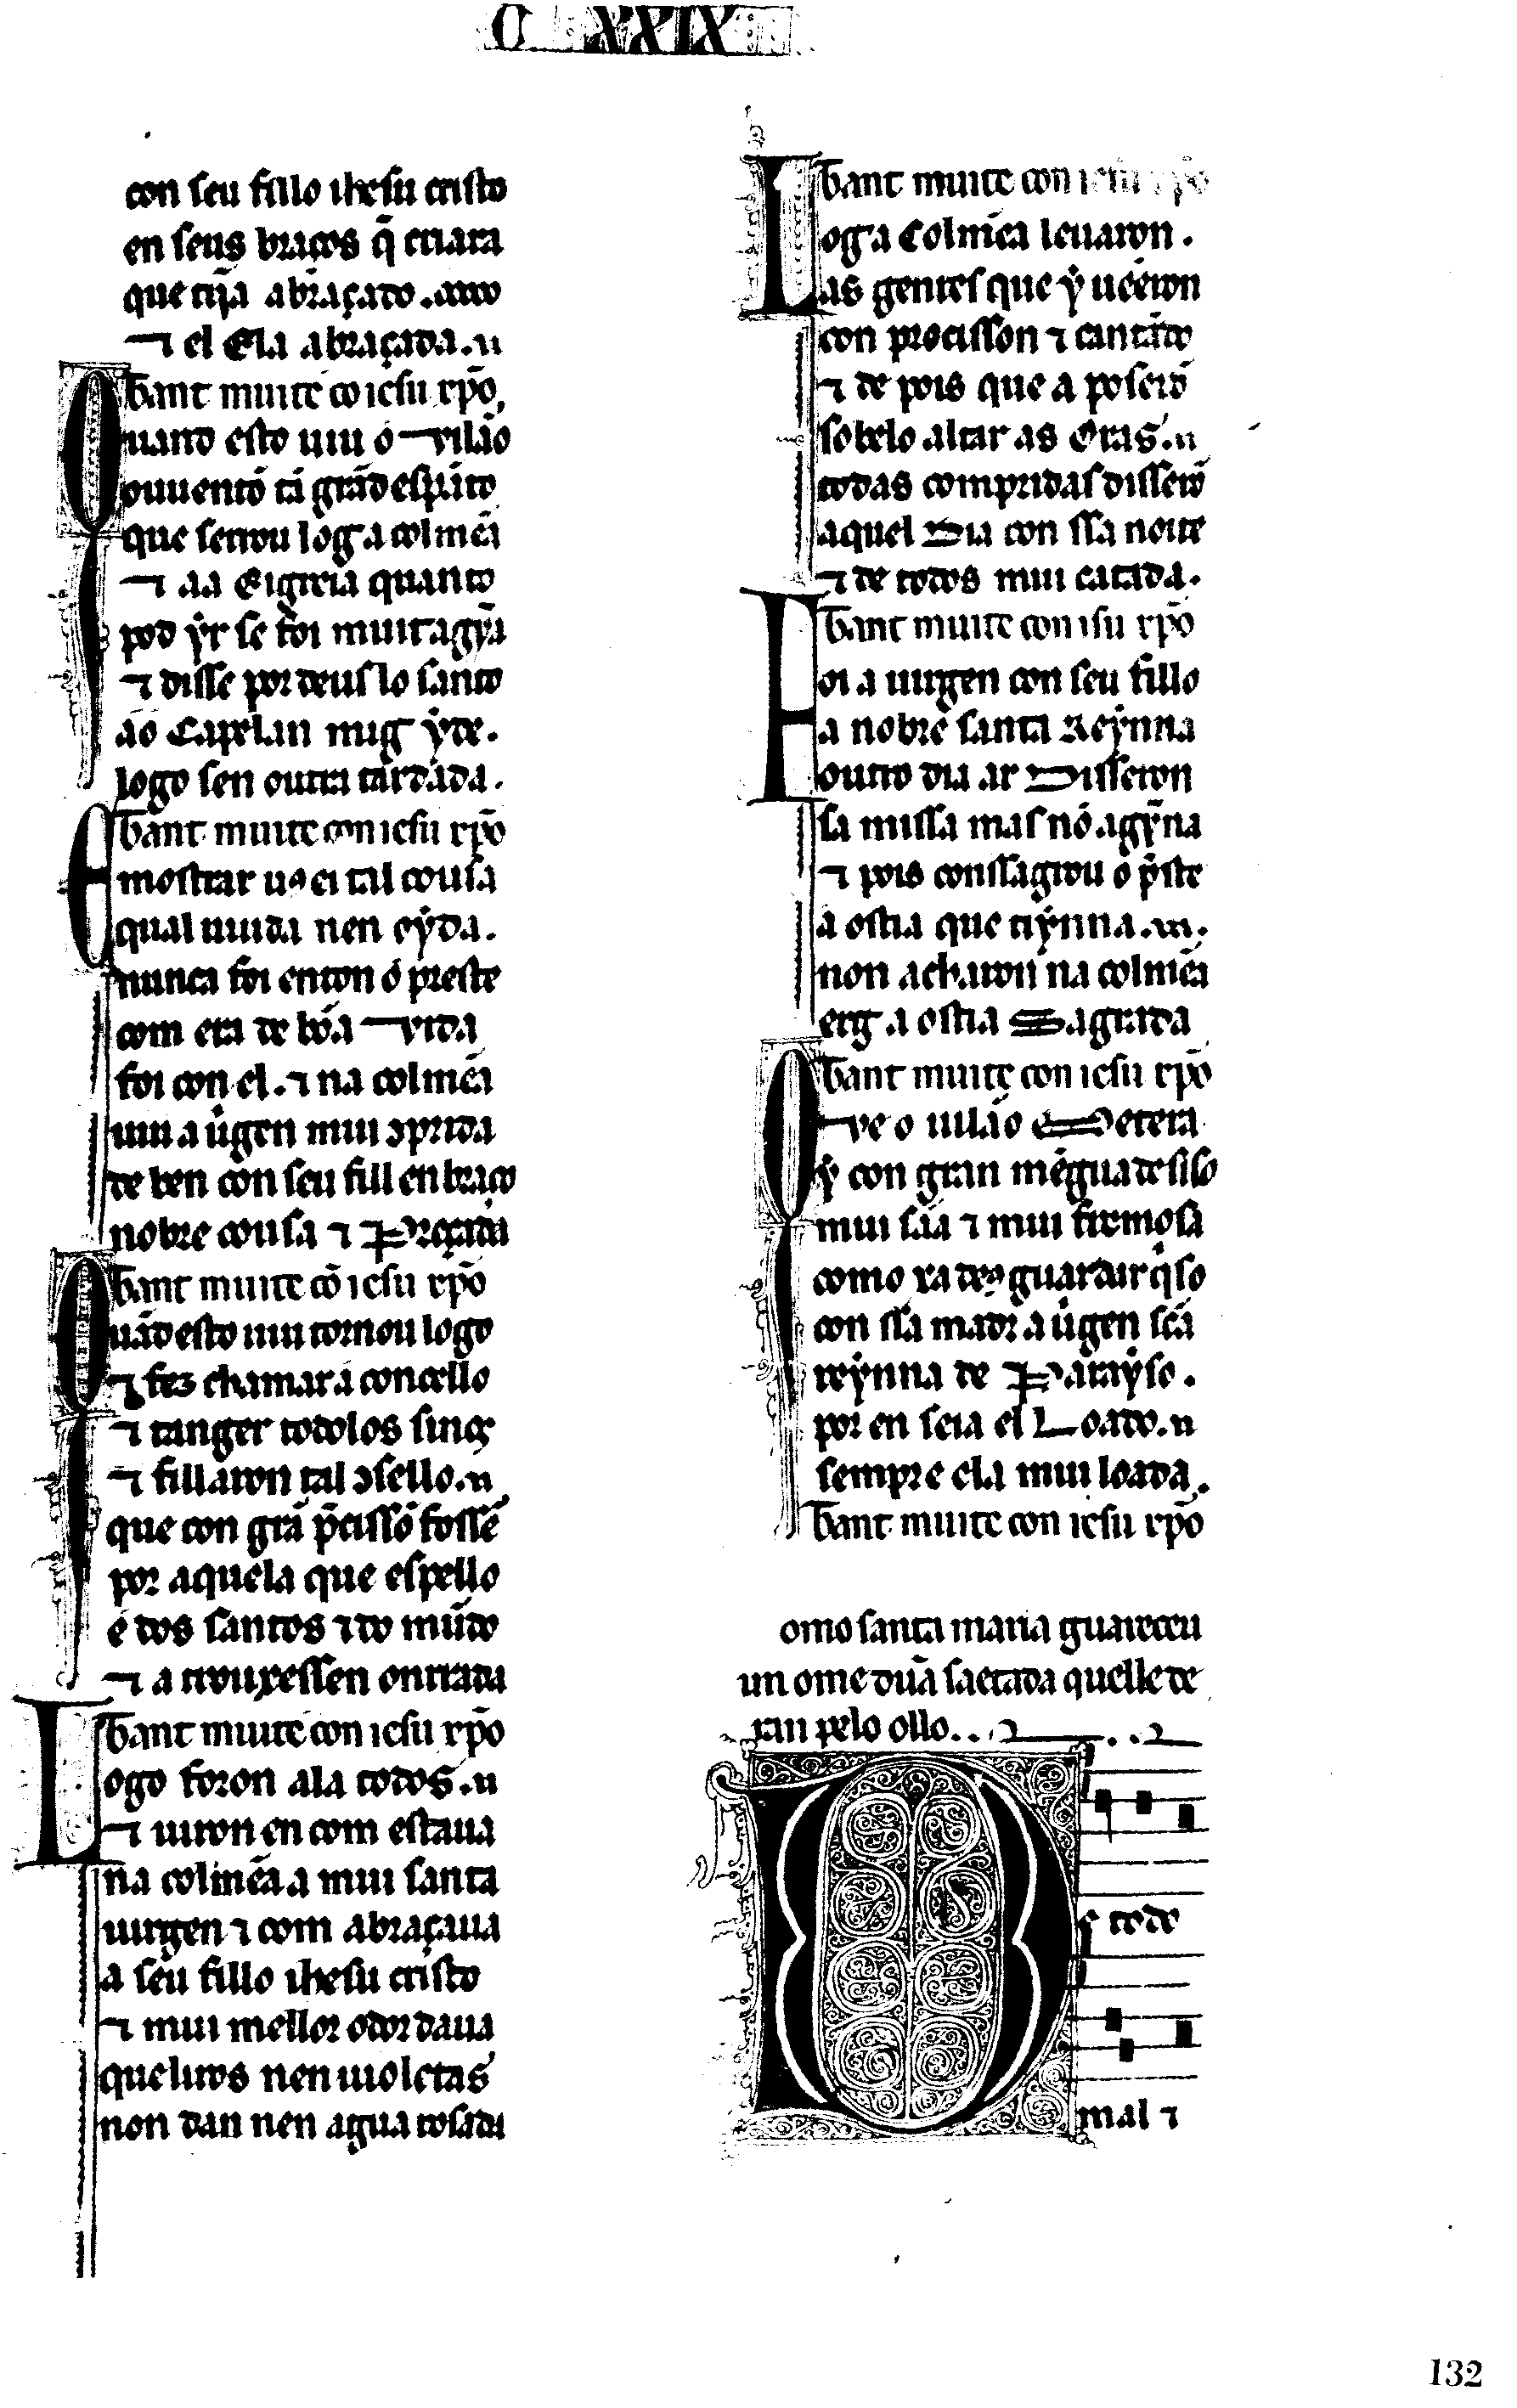 C XXIX
con seu fillo ihesu cristo
en seus braços q̄ criara
que tiȷ̃a abraçado.
⁊ el Ela abraçada.
bant muite cō iesu xp̄o
Quando esto uiu o vilão
ouuentō tā grād espāto
que serrou log a colmẽa
⁊ aa Eigreia quanto
pod ẏr se foi muit agỹa
⁊ disse por deus lo santo
ao Capelan mig ẏde.
logo sen outra tardada.
bant muite con iesu xp̄o
E mostrar uꝯ ei tal cousa
qual uiuda nen oẏda.
nunca foi enton o preste
com era de bōa vida
foi con el. ⁊ na colmẽa
uiu a uirgen mui ↄprida
de ben con seu fill en braço
nobre cousa ⁊ Preçada
bant muite cō iesu xp̄o
Quādo esto uiu tornou logo
⁊ fez chamar a concello
⁊ tanger todolos sinos
⁊ fillaron tal ↄsello.
que con grā p̄cissō fossē
por aquela que espello
é dos santos ⁊ do mūdo
⁊ a trouxessen onrrada
bant muite con iesu xp̄o
Logo foron ala todos.
⁊ uiron en com estaua
na colmẽa a mui santa
uirgen ⁊ com abraçaua
a seu fillo ihesu cristo
⁊ mui mellor odor daua
que liros nen uioletas
non dan nen agua rosada
bant muite con iesu xp̄o
Log a Colmẽa leuaron.
as gentes que ẏ uẽeron
con procisson ⁊ cantādo
⁊ de pois que a poserō
sobelo altar as Oras.
todas compridas disserō
aquel Dia con ssa noite
⁊ de todos mui catada.
bant muite con isu xp̄o
Foi a uirgen con seu fillo
a nobre santa Reẏnna
outro dia ar Disseron
sa missa mas nō agỹna
⁊ pois conssagrou o p̄ste
a ostia que tiỹnna.
non acharon na colmẽa
erg a ostia Sagrada
bant muite con iesu xp̄o
Ouve o uilão Metera
ẏ con gran mēgua de siso
mui sāa ⁊ mui fremosa
como xa deꝯ guardar q̇so
con ssa madr a uirgen scā
reẏnna de Paraẏso.
por en seia el Loado.
sempre ela mui loada.
bant muite con iesu xp̄o
omo santa maria guareceu
un ome dūa saetada quelle de
ran pelo ollo.
De todo
mal ⁊
132